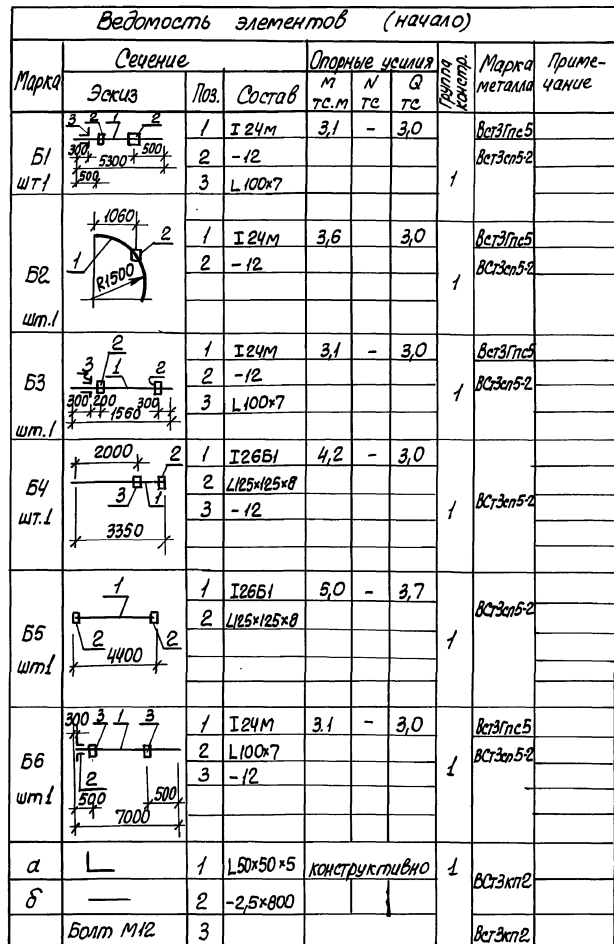 Ведомость элементов (начало)
Марка Сечение Опорные усилия Группа констр. Марка металла Примечание
Эскиз Поз. Состав М тс.м N тс Q тс
Б1 шт1
3 2 1 2
300 500
5300
500
1 I 24М 3,1 - 3,0 1 Вст3Гпс5
2 -12 Вст3сп5-2
3 L 100×7
Б2 шт.1
1060
1 2
R1500
1 I 24М 3,6 3,0 1 Вст3Гпс5
2 -12 Вст3сп5-2
Б3 шт.1
2
3 1 2
300 200 300
1560
1 I 24М 3,1 - 3,0 1 Вст3Гпс5
2 -12 Вст3сп5-2
3 L 100×7
Б4 шт.1
2000 2
3 1
3350
1 I26Б1 4,2 - 3,0 1 ВСт3сп5-2
2 L125×125×8
3 -12
Б5 шт1
1
2 2
4400
1 I26Б1 5,0 - 3,7 1 ВСт3сп5-2
2 L125×125×8
Б6 шт1
300 3 1 3
2
500 500
7000
1 I24М 3.1 - 3,0 1 Вст3Гпс5
2 L100×7 ВСт3сп5-2
3 -12
а 1 L50×50×5 конструктивно 1 ВСт3кп2
б 2 -2,5×800
Болт М12 3 Вст3кп2